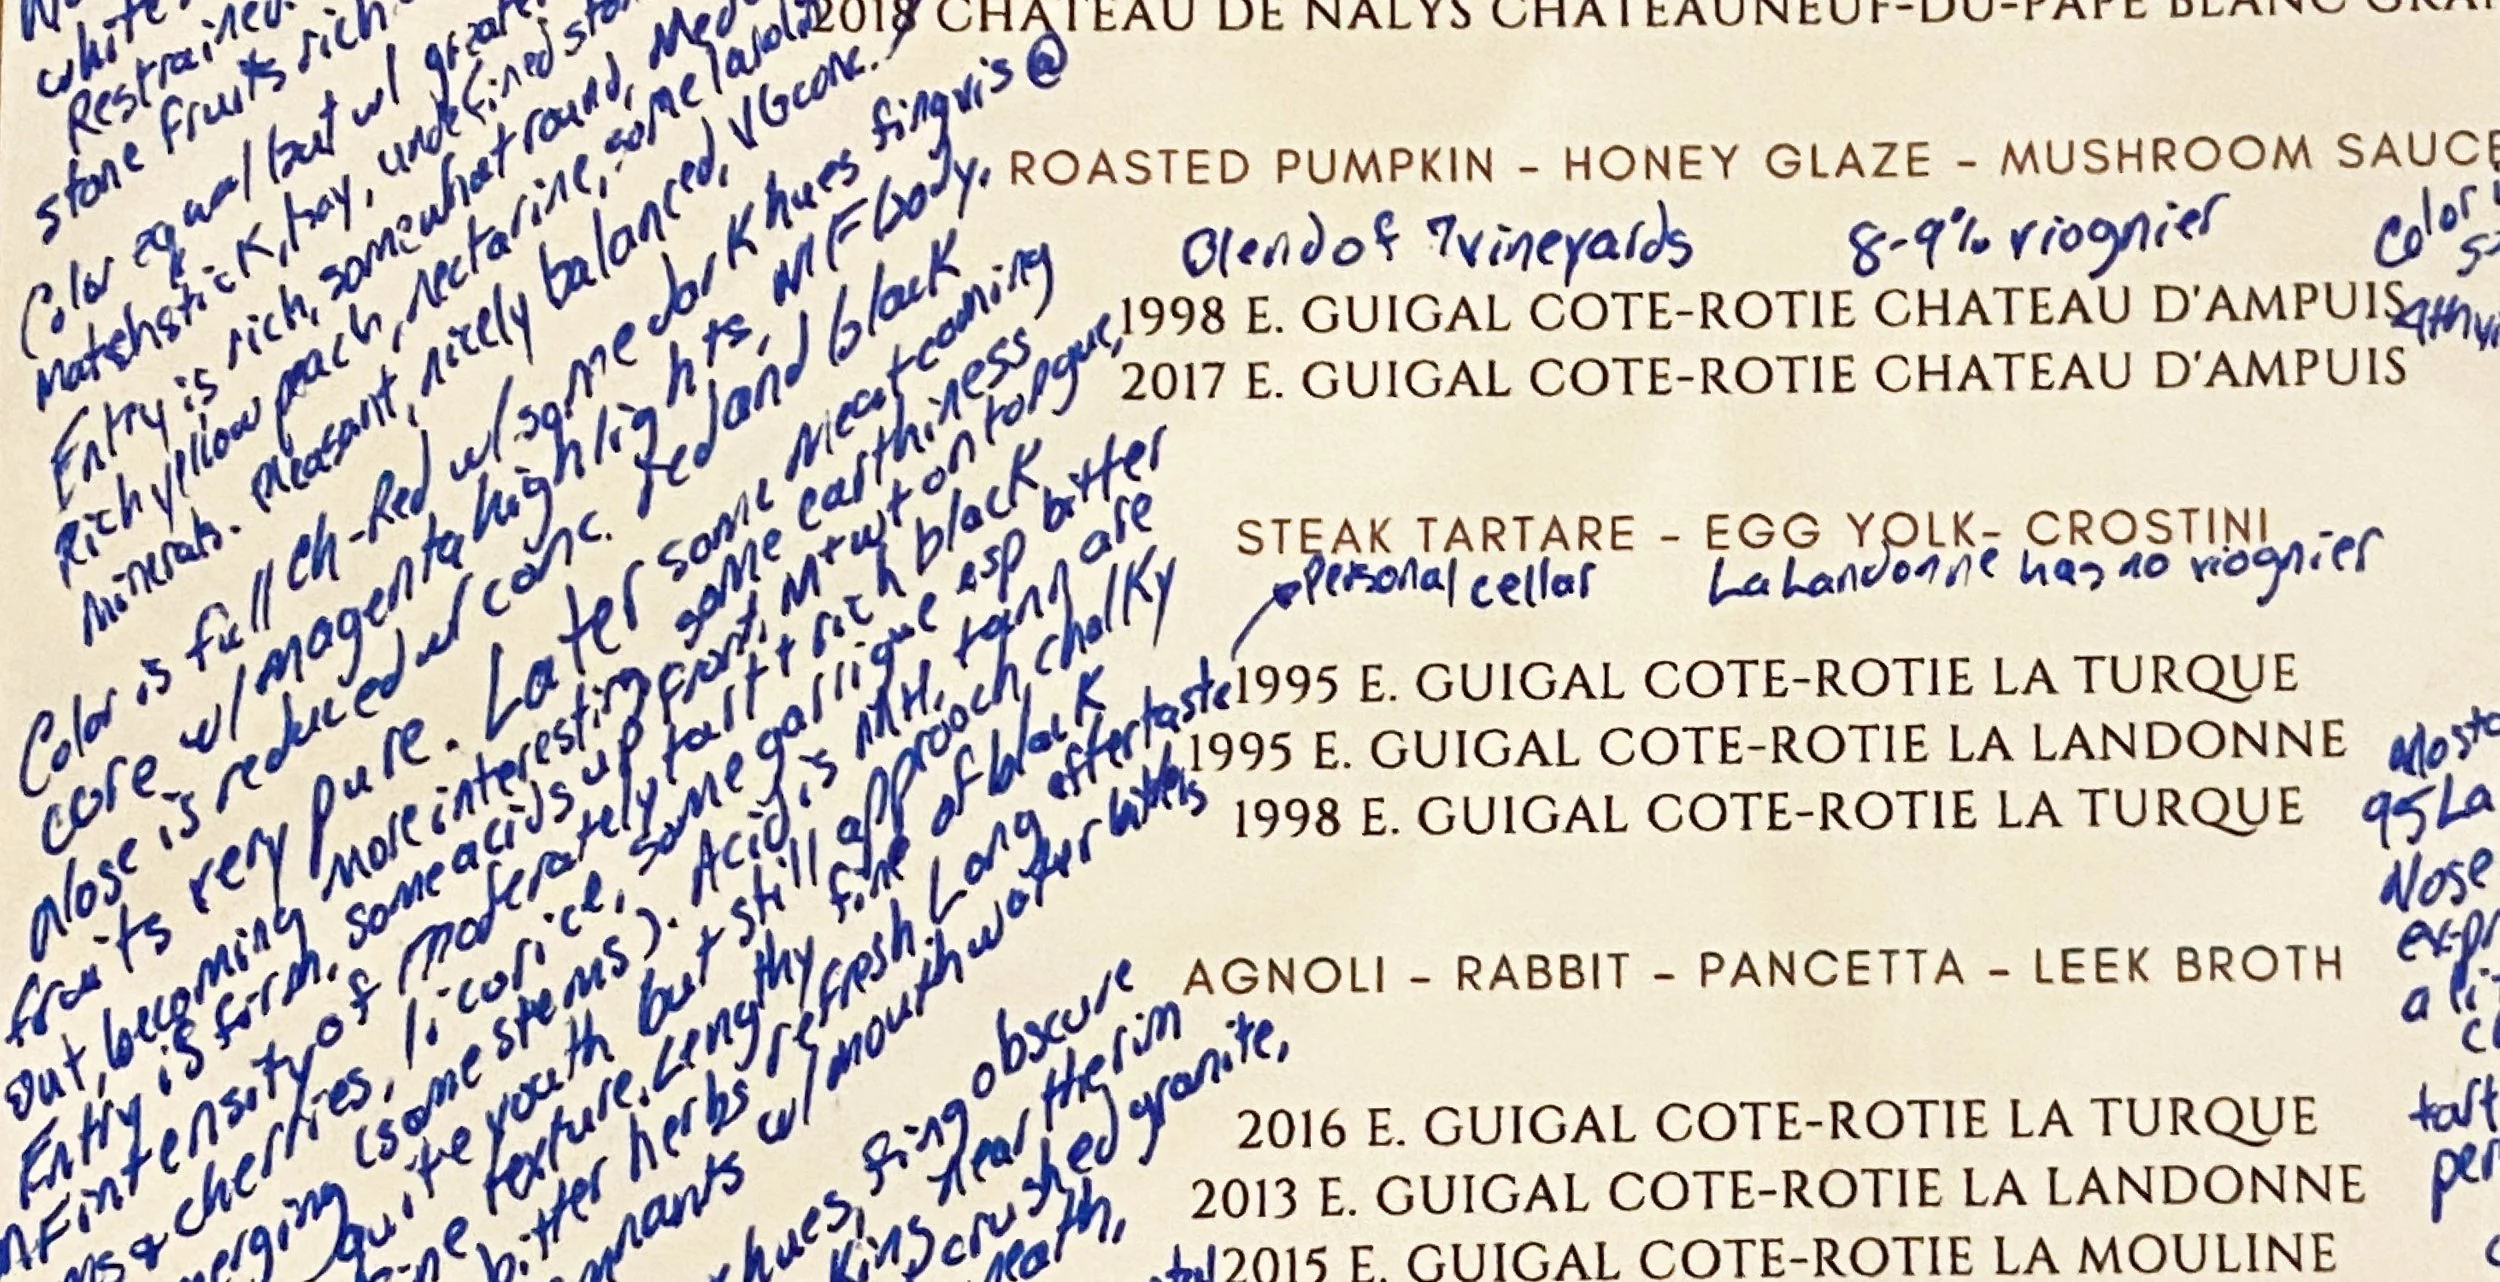 2018 CHATEAU DE NALYS CHATEAUNEUF-DU-PAPE BLANC
ROASTED PUMPKIN – HONEY GLAZE – MUSHROOM SAUCE
Blend of 7 vineyards 8-9% viognier
1998 E. GUIGAL COTE-ROTIE CHATEAU D'AMPUIS
2017 E. GUIGAL COTE-ROTIE CHATEAU D'AMPUIS
STEAK TARTARE – EGG YOLK– CROSTINI
Personal cellar La Landonne has no viognier
1995 E. GUIGAL COTE-ROTIE LA TURQUE
1995 E. GUIGAL COTE-ROTIE LA LANDONNE
1998 E. GUIGAL COTE-ROTIE LA TURQUE
AGNOLI – RABBIT – PANCETTA – LEEK BROTH
2016 E. GUIGAL COTE-ROTIE LA TURQUE
2013 E. GUIGAL COTE-ROTIE LA LANDONNE
2015 E. GUIGAL COTE-ROTIE LA MOULINE
white
Restrained
stone fruits rich
Color equal but w/ greater
matchstick, hay, undefined
Entry is rich, somewhat round, Med
Rich yellow peach, nectarine, some
minerals. Pleasant, nicely balanced, VG conc.
Color is full ch-Red w/ some dark hues fing vis @
core w/ magenta highlights, MF body.
Nose is reduced w/ conc. red and black
fruits very pure. Later some meat coming
out, becoming more interesting some earthiness
Entry is firm, some acids up front, M+ wt on tongue,
MF intensity of moderately tart + rich black
& cherries, licorice, some garrigue esp bitter
(some stems). Acid is MH, tann are
quite youth but still approach, chalky
texture. Lengthy fine of black
bitter herbs refresh. Long aftertaste
w/ mouthwater bitters
hues, fing obscure
near the rim
crushed granite,
Color
Nose
95 La
a
tart